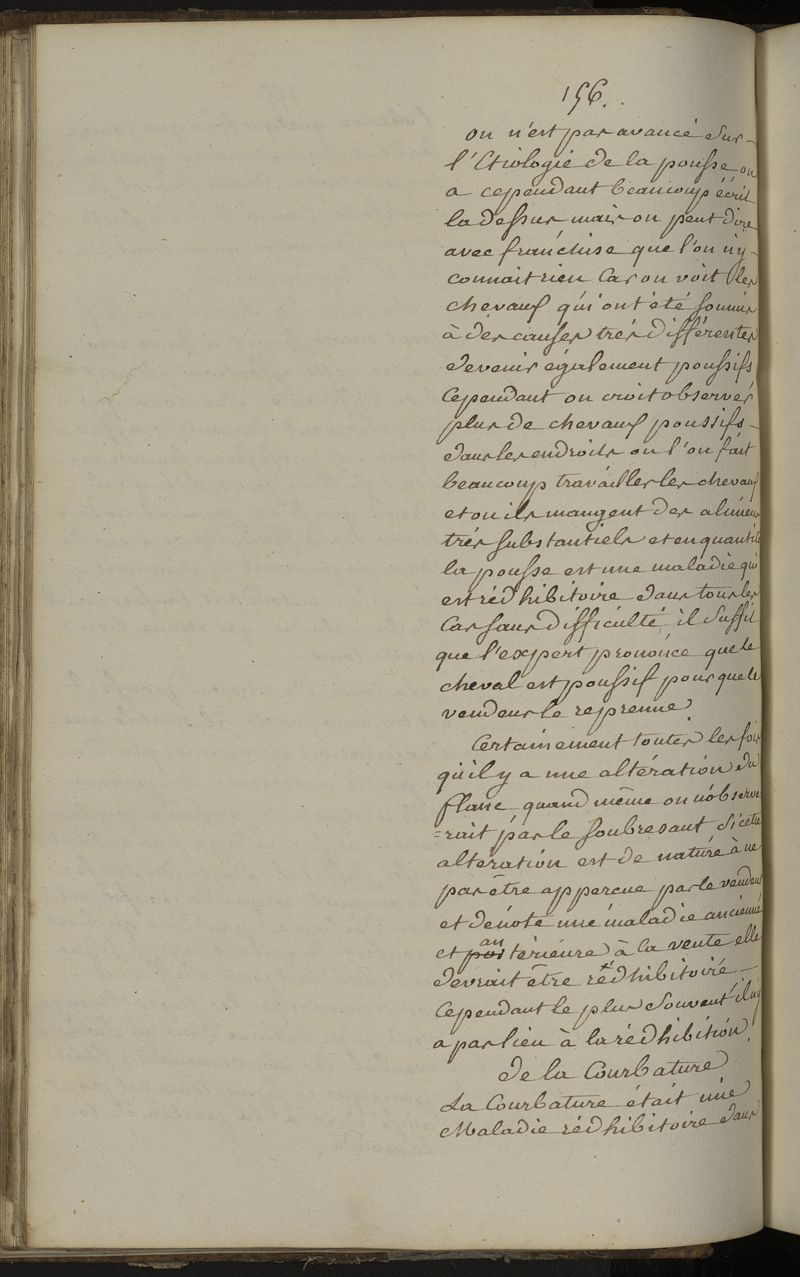 156.
on n'est pas avancé sur
l'Etiologie de la pousse on
a cependant beaucoup écrit
la dessus mais on peut dire
avec franchise que l'on n'y
connait rien Car on voit les
chevaux qui ont été soumis
à des causes très différentes
devenir également poussifs
Cependant on croit observer
plus de chevaux poussifs
dans les endroits ou l'on fait
beaucoup travailler les chevaux
et ou ils mangent des aliments
très substantiels et en quantité
la pousse est une maladie qui
est rédhibitoire dans tous les
Cas sans difficulté il suffit
que l'expert prononce que le
cheval est poussif pour que le
vendeur le reprenne.
Certainement toutes les fois
qu'il y a une altération du
flanc quand même on n'observe
=rait pas le soubresaut Si cette
altération est de nature à ne
pas être apperçue par le vendeur
et dénote une maladie ancienne
et antérieure à la vente elle
devrait être rédhibitoire
Cependant le plus souvent il n'y
a pas lieu à la rédhibition.
de la Courbature
La Courbature était une
Maladie rédhibitoire dans